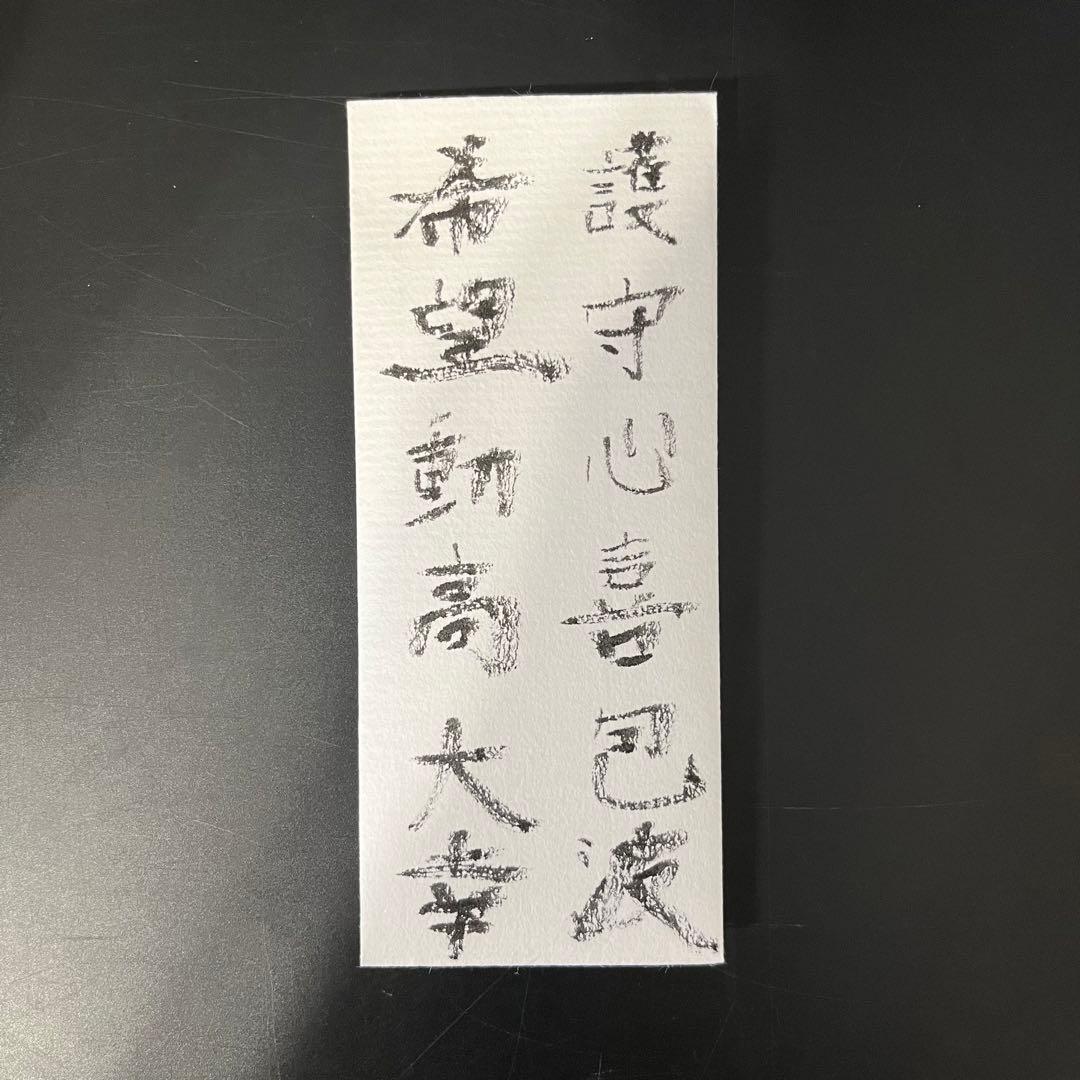 護守心喜包波
希望動高大幸